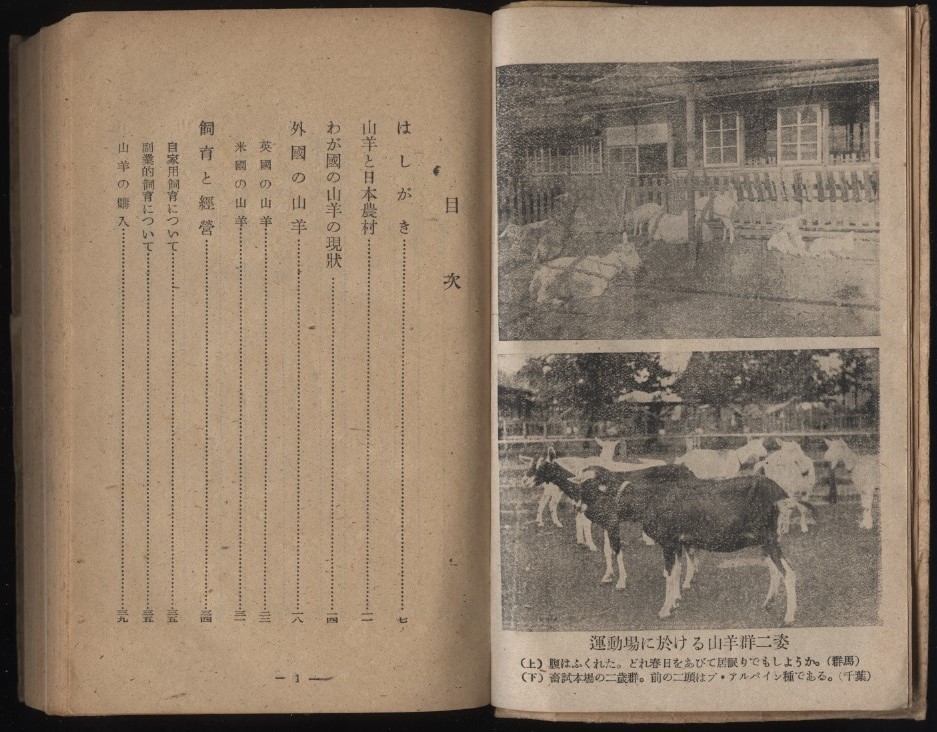 運動場に於ける山羊群二姿
(上) 腹はふくれた。どれ春日をあびて居眠りでもしようか。(群馬)
(下) 畜試本場の二歳群。前の二頭はブ・アルパイン種である。(千葉)
目次
はしがき……七
山羊と日本農村……一一
わが國の山羊の現狀……一四
外國の山羊……一八
英國の山羊……
米國の山羊……
飼育と經營……
自家用飼育について……
副業的飼育について……
山羊の購入……
— 1 —